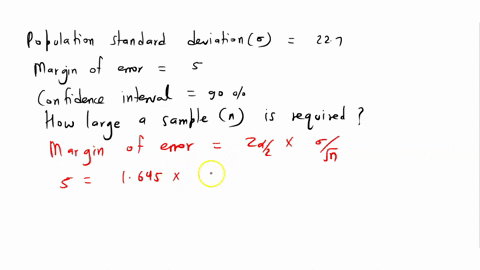 Population standard deviation (σ) = 22.7
Margin of error = 5
Confidence interval = 90%
How large a sample (n) is required?
Margin of error = Zα/2 × σ/√n
5 = 1.645 ×